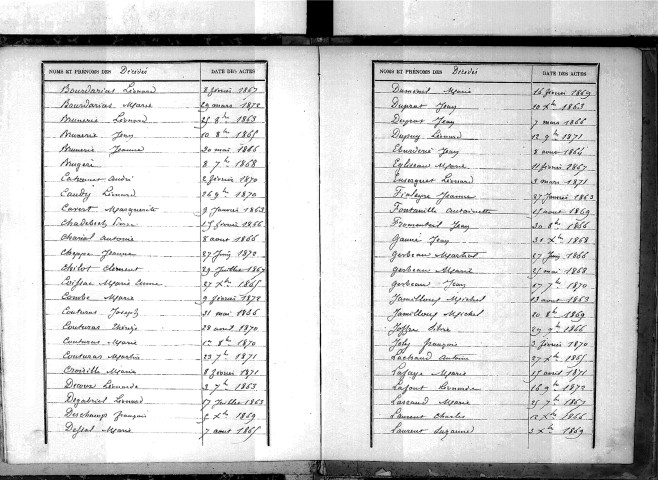 NOMS ET PRÉNOMS DES Décédés DATE DES ACTES
Bourdarias Léonard 8 février 1867
Bourdarias Marie 29 mars 1872
Brunerie Léonard 25 8bre 1863
Brunerie Jean 10 8bre 1865
Brunerie Jeanne 20 mai 1866
Brugere 8 7bre 1868
2 février 1870
Caudy Léonard 26 9bre 1870
Cavert Marguerite 9 Janvier 1863
15 février 1866
Chariel Antoine 8 aout 1866
Chezze Jeanne 27 Juin 1872
Chilot Clément 29 Juillet 1867
Coissac Marie 27 Xbre 1865
Combe Marie 9 février 1872
Couturas Joseph 31 mai 1866
Couturas 28 avril 1870
Couturas Marie 1er 8bre 1870
Couturas Martin 23 7bre 1871
Croizille Marie 8 février 1871
Léonarde 3 7bre 1863
Dezabriel Léonard 17 Juillet 1863
Deschamps françois 5 Xbre 1869
Dessal Marie 7 aout 1865
NOMS ET PRÉNOMS DES Décédés DATE DES ACTES
Dumond Marie 16 février 1869
Duprat Jean 10 Xbre 1863
Duprat Jean 7 mars 1866
Dupuy Léonard 12 9bre 1871
Jean 8 aout 1864
Marie 11 février 1867
Léonard 3 mars 1871
Jeanne 27 Janvier 1863
Fontanille Antoinette 15 aout 1869
Fromenteil Jean 20 8bre 1866
Gamie Jean 31 Xbre 1868
Gerbeau Martial 27 Juin 1866
Gerbeau Marie 25 mai 1868
Gerbeau Jean 17 7bre 1870
Jamilloux Michel 13 aout 1863
Jamilloux Michel 20 8bre 1869
Joffre 29 9bre 1866
Joly françois 2 février 1870
Lachaud Antoine 27 Xbre 1865
Lafaye Marie 15 avril 1871
Lafont Léonarde 16 9bre 1872
Lascaud Marie 25 7bre 1867
Laurent Charles 12 Xbre 1866
Laurent Suzanne 2 Xbre 1869